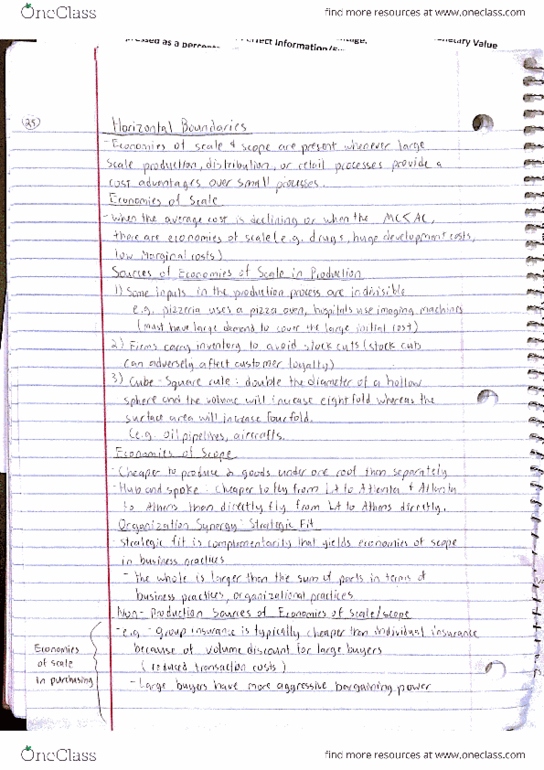 OneClass
find more resources at www.oneclass.com
pressed as a percent
erfect Information/
netary Value
25
Horizontal Boundaries
-Economies of scale & scope are present whenever large
scale production, distribution, or retail processes provide a
cost advantages over small processes.
Economies of Scale
-When the average cost is declining or when the MC<AC,
there are economies of scale (e.g. drugs, huge development costs,
low marginal costs)
Sources of Economies of Scale in Production
1) Some inputs in the production process are indivisible
e.g. pizzeria uses a pizza oven, hospitals use imaging machines
(must have large demand to cover the large initial cost)
2) Firms carry inventory to avoid stock outs (stock outs
can adversely affect customer loyalty)
3) Cube-Square rule: double the diameter of a hollow
sphere and the volume will increase eightfold whereas the
surface area will increase fourfold.
(e.g. oil pipelines, aircrafts.
Economies of Scope
-Cheaper to produce 2 goods under one roof than separately
-Hub and spoke: cheaper to fly from LA to Atlanta & Atlanta
to Athens than directly fly from LA to Athens directly.
Organization Synergy: Strategic Fit
-Strategic fit is complimentarity that yields economies of scope
in business practices
-the whole is larger than the sum of parts in terms of
business practices, organizational practices
Non-Production Sources of Economies of Scale/scope
-e.g. -group insurance is typically cheaper than individual insurance
because of volume discount for large buyers
(reduced transaction costs)
-Large buyers have more aggressive bargaining power
Economies
of scale
in purchasing
OneClass
find more resources at www.oneclass.com